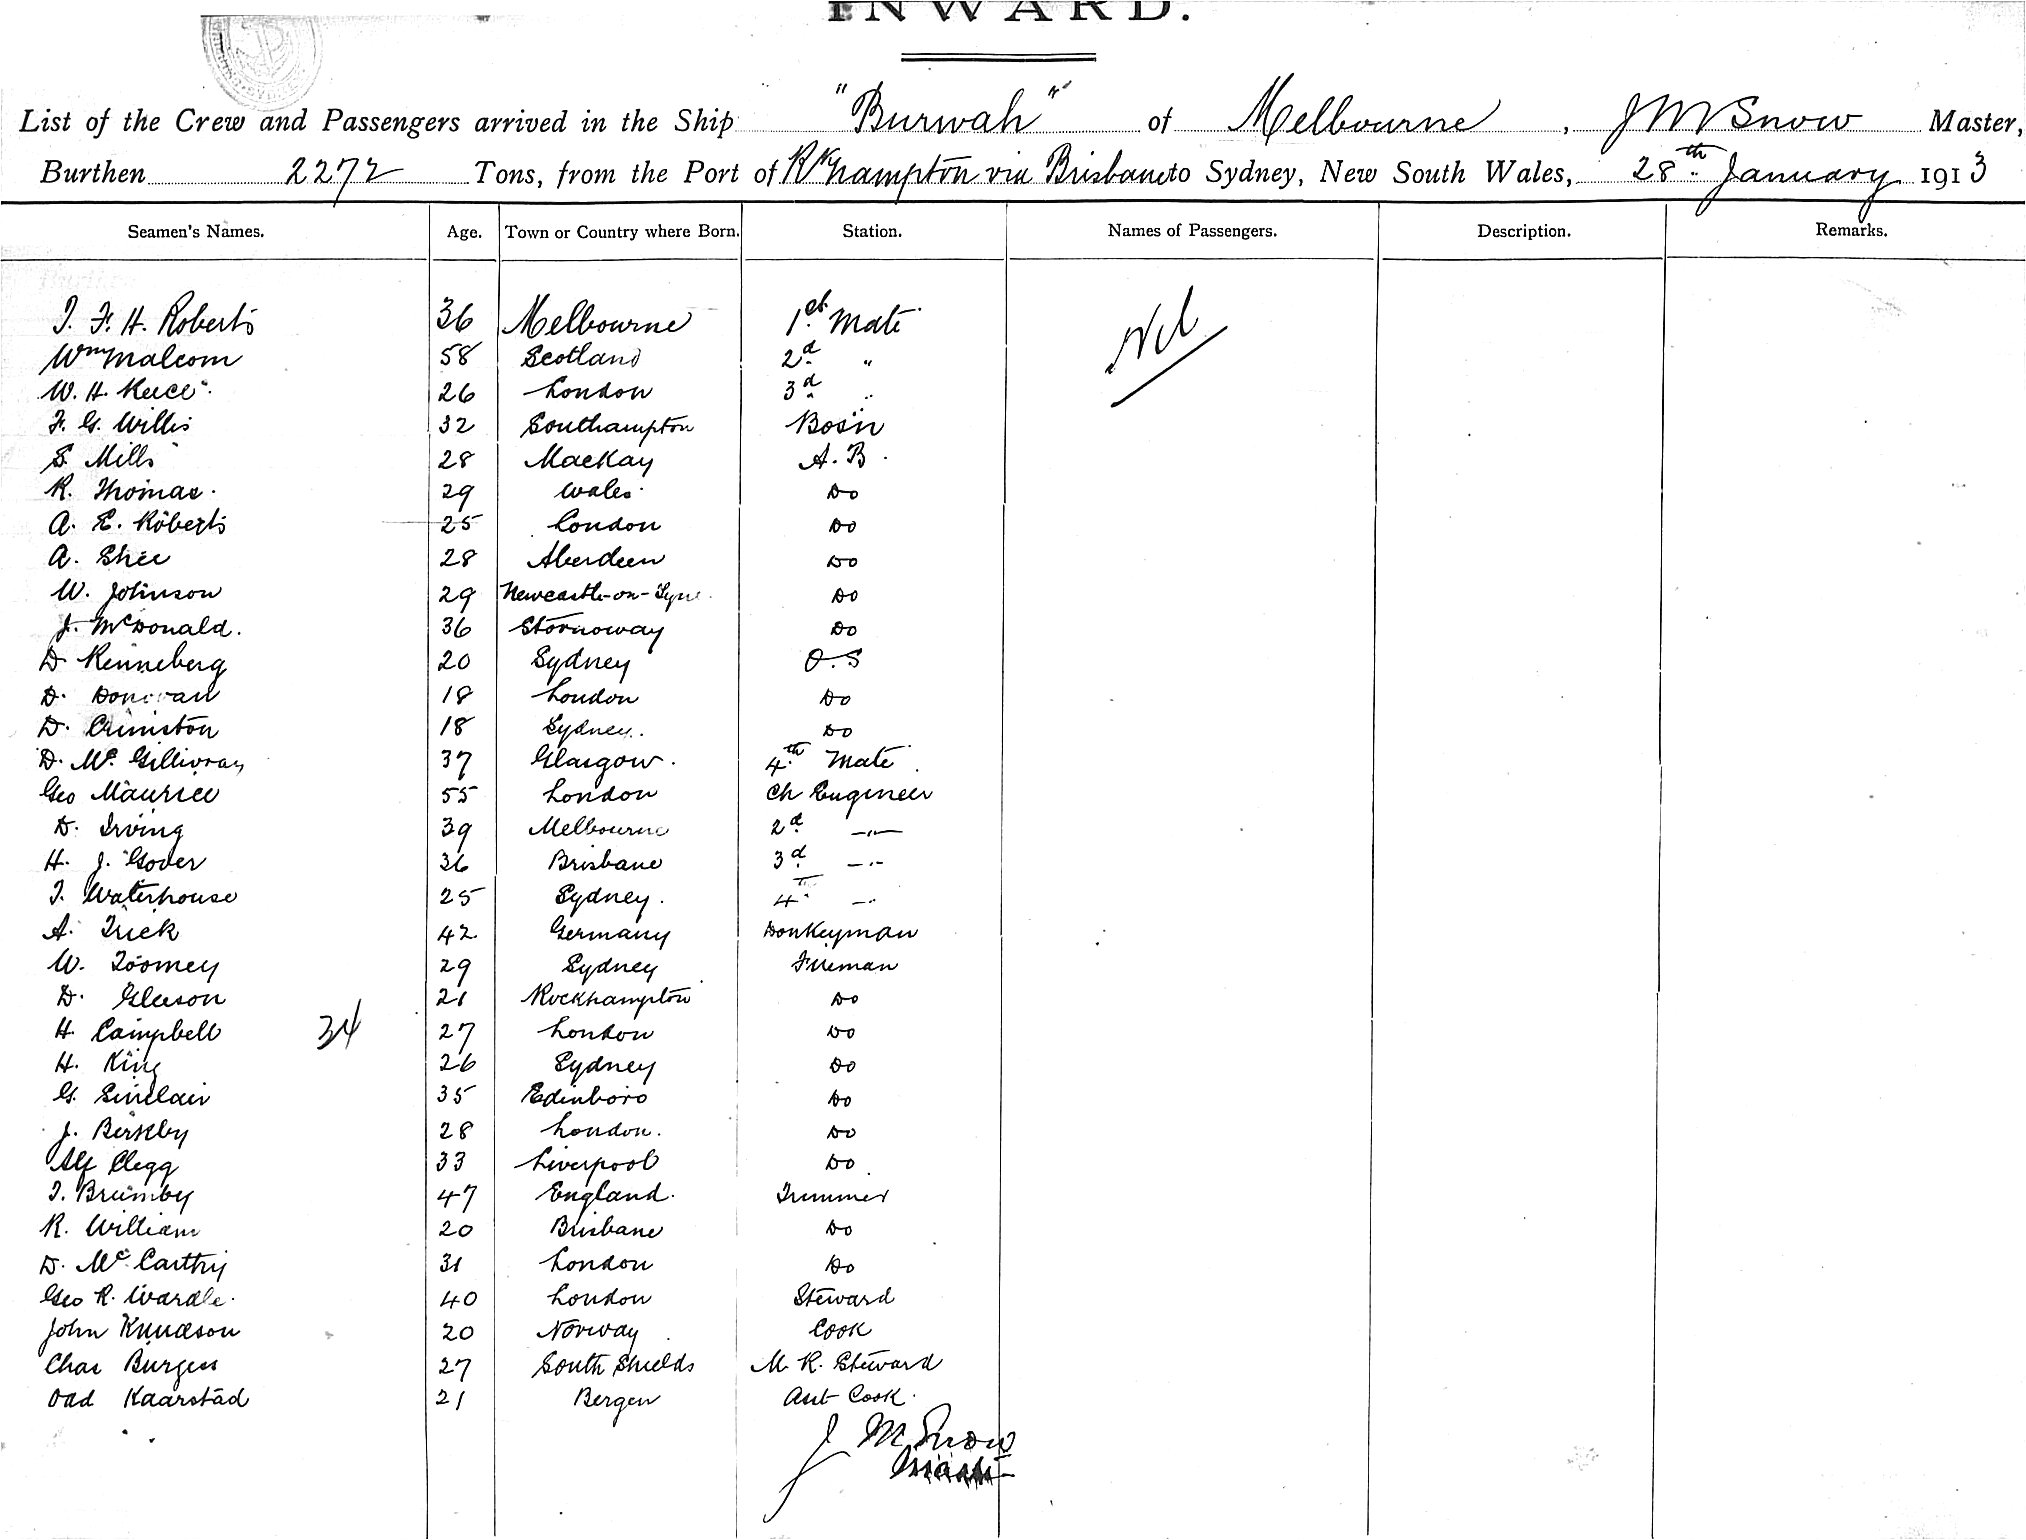 INWARD.
List of the Crew and Passengers arrived in the Ship "Burwah" of Melbourne, J M Snow Master,
Burthen 2272 Tons, from the Port of Rkhampton via Brisbane to Sydney, New South Wales, 28th January 1913
Seamen's Names. Age. Town or Country where Born. Station. Names of Passengers. Description. Remarks.
T. F. H. Roberts 36 Melbourne 1st Mate Nil
Wm Malcom 58 Scotland 2d "
W. H. 26 London 3d "
F. G. Willis 32 Southampton Bosn
S. Mills 28 Mackay A. B.
R. Thomas. 29 Wales Do
A. E. Roberts 25 London Do
A. Shee 28 Aberdeen Do
W. Johnson 29 Newcastle-on-Tyne Do
J. McDonald. 36 Stornoway Do
D. Renneberg 20 Sydney O. S
D. Donovan 18 London Do
D. Crimston 18 Sydney. Do
D. Mc Gillivray 37 Glasgow. 4th Mate
Geo Maurice 55 London Ch Engineer
D. Irving 39 Melbourne 2d —"—
H. J. Gover 36 Brisbane 3d —"—
T. Waterhouse 25 Sydney. 4th —"
A. Trick 42 Germany Donkeyman
W. Toomey 29 Sydney Fireman
D. Gleeson 21 Rockhampton Do
H. Campbell 34 27 London Do
H. King 26 Sydney Do
G. Sinclair 35 Edinboro Do
J. Berkley 28 London. Do
Alf Clegg 33 Liverpool Do
T. Brumby 47 England. Trimmer
R. William 20 Brisbane Do
D. Mc Carthy 31 London Do
Geo R. Wardle. 40 London Steward
John Knudson 20 Norway Cook
Chas Burgess 27 South Shields M. R. Steward
Odd Kaarstad 21 Bergen Asst Cook.
J M Snow